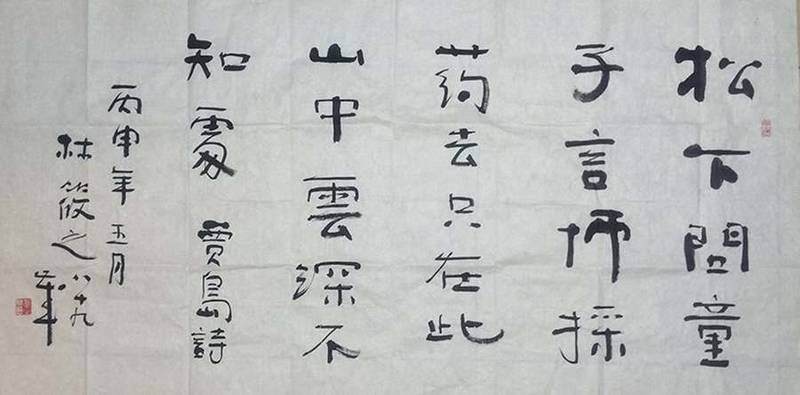 松下問童
子言師採
药去只在此
山中雲深不
知處 賈島詩
丙申年五月
林筱之八十九
华